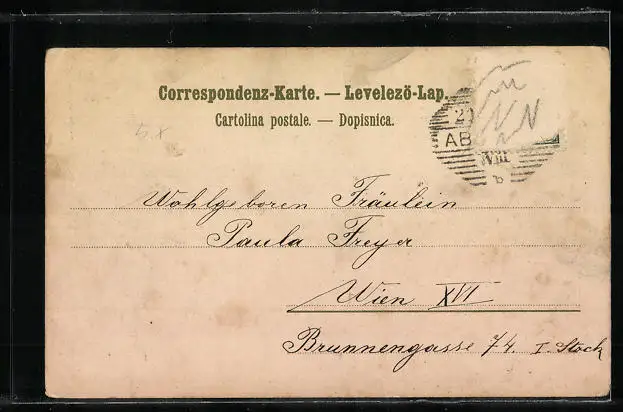 Correspondenz-Karte. — Levelező-Lap.
Cartolina postale. — Dopisnica.
AB
VIII
b
Wohlgeboren Fräulein
Paula Freyer
Wien XVI
Brunnengasse 74. I. Stock